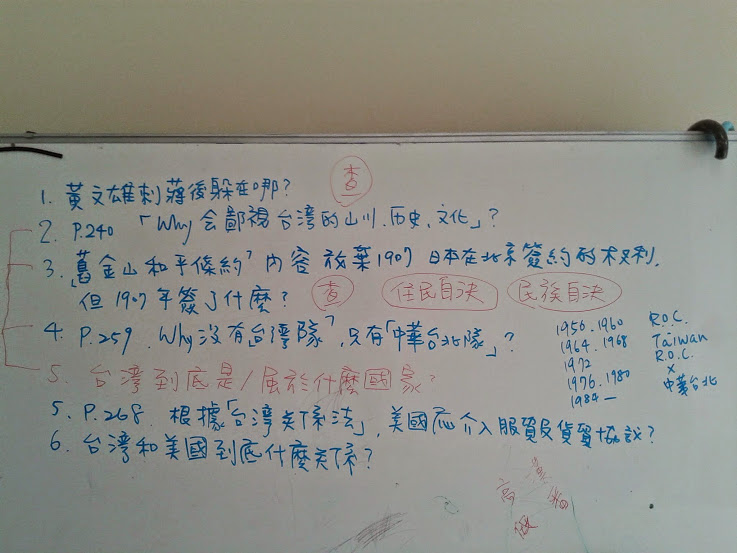 查
1. 黃文雄刺蔣後躲在哪?
2. P.240 「Why 会鄙視台湾的山川、历史、文化」?
3. 「舊金山和平條約」內容 放棄1907 日本在北京簽約的权利.
但1907年簽了什麼? 查 住民自決 民族自決
4. P.259. Why 沒有「台灣隊」, 只有「中華台北隊」?
5. 台灣到底是/属於什麼國家?
5. P.268. 根據「台湾关係法」, 美國应介入服貿及貨貿協議?
6. 台湾和美國到底什麼关係?
1956.1960 R.O.C.
1964.1968 Taiwan
1972 R.O.C.
1976.1980 ×
1984— 中華台北